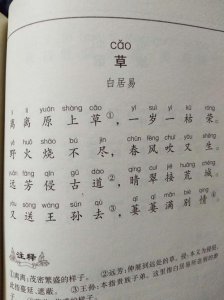 cǎo
草
白居易
lí lí yuán shàng cǎo yí suì yì kū róng
离离原上草①，一岁一枯荣。
yě huǒ shāo bú jìn chūn fēng chuī yòu shēng
野火烧不尽，春风吹又生。
yuǎn fāng qīn gǔ dào qíng cuì jiē huāng chéng
远芳侵古道②，晴翠接荒城。
yòu sòng wáng sūn qù qī qī mǎn bié qíng
又送王孙去③，萋萋满别情④。
注释
①离离：茂密繁盛的样子。 ②远芳：伸展到远处的草。侵：本义为侵犯，
此指蔓延、遮蔽。 ③王孙：本指贵族子弟，这里指白居易所送别的
的样子。